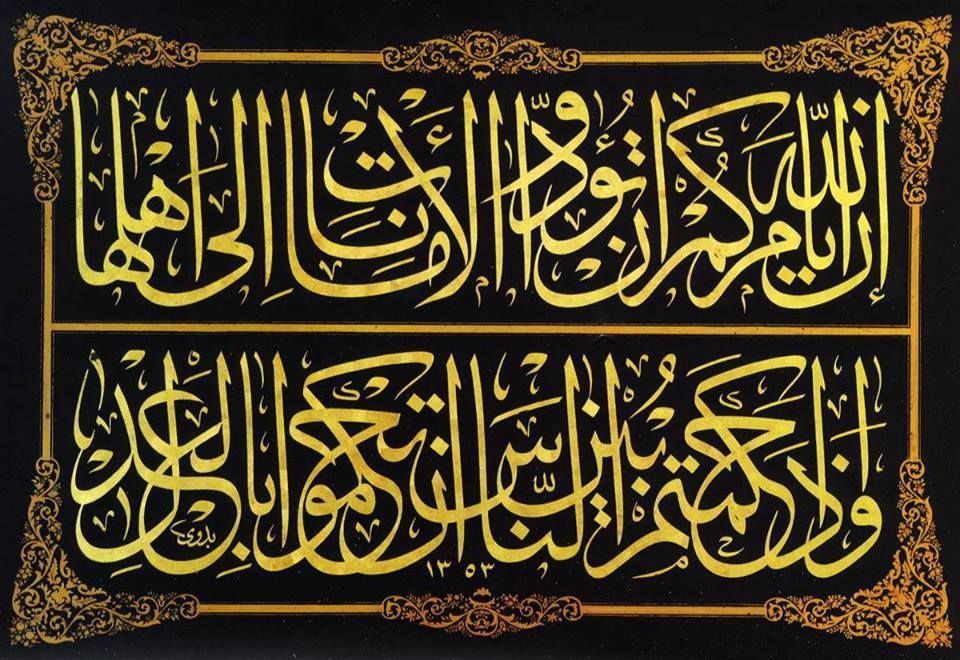 إن الله يأمركم أن تؤدوا الأمانات إلى أهلها
وإذا حكمتم بين الناس أن تحكموا بالعدل
بدوي
١٣٥٣